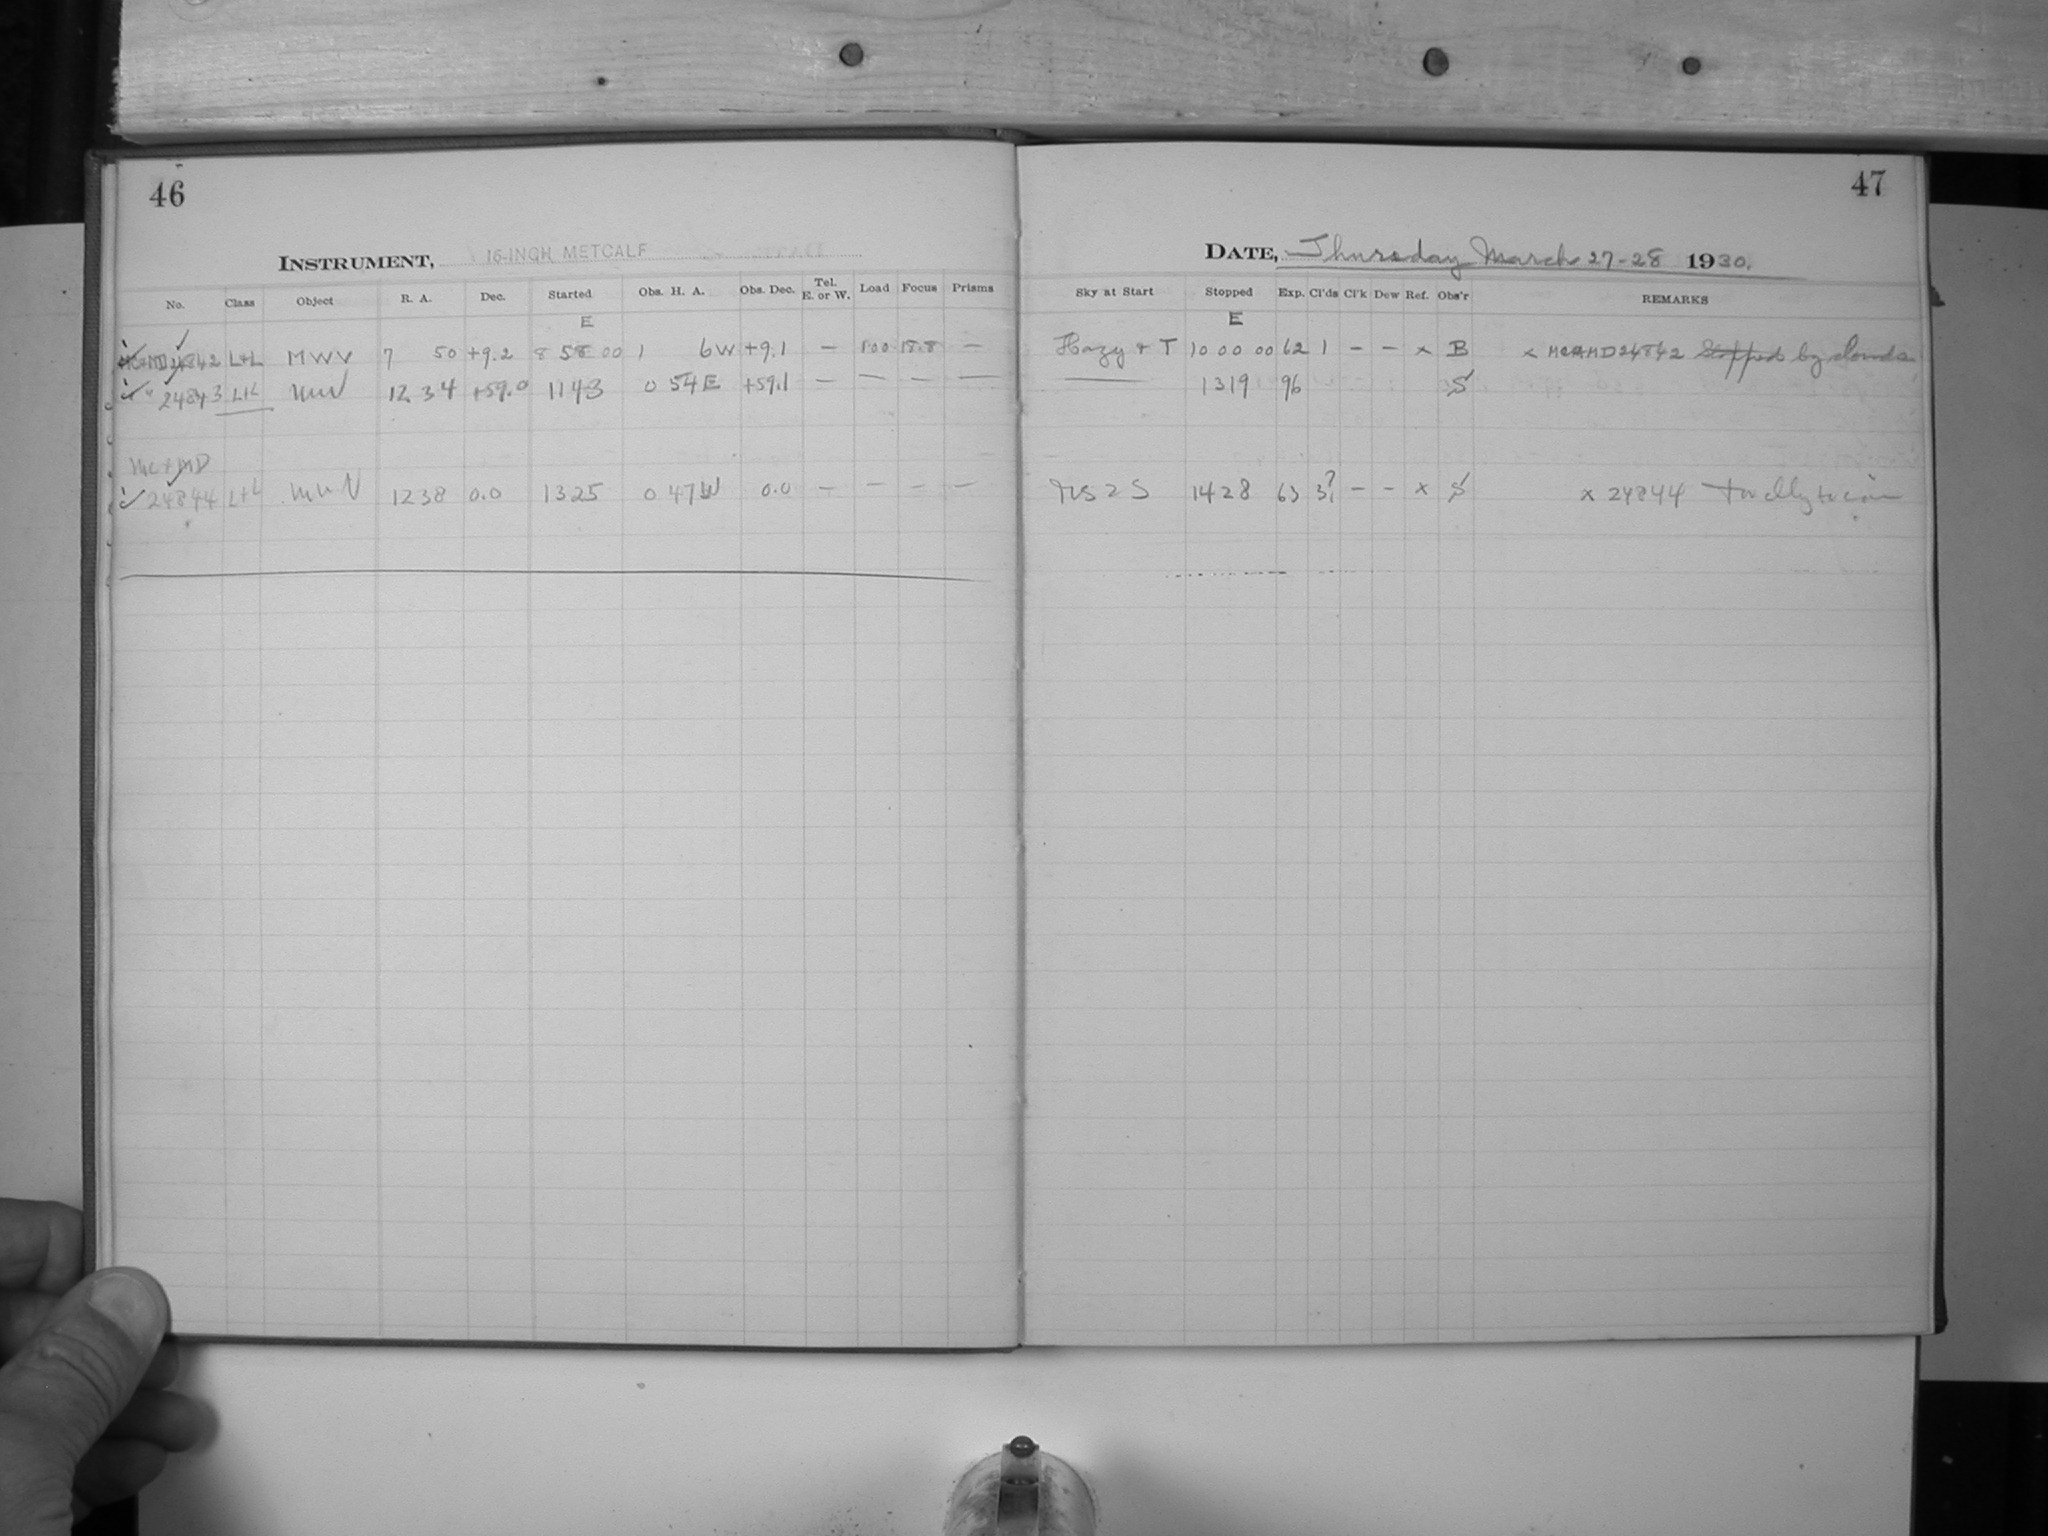 46
INSTRUMENT, 16-INCH METCALF
No. Class Object R. A. Dec. Started Obs. H. A. Obs. Dec. Tel. E. or W. Load Focus Prisms
E
MC+MD 24842 L+L MWV 7 50 +9.2 8 58 00 1 6W +9.1 — 100 18.8 —
" 24843 L+L MWV 12 34 +59.0 1143 0 54E +59.1 — — — —
MC+MD
24844 L+L MWV 1238 0.0 1325 0 47W 0.0 — — — —
47
DATE, Thursday March 27-28 1930.
Sky at Start Stopped Exp. Cl'ds Cl'k Dew Ref. Obs'r REMARKS
E
Hazy + T 10 00 00 62 1 – – x B x MC+MD 24842 Stopped by clouds
1319 96 S
1428 63 3? – – x S x 24844